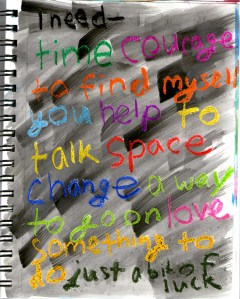 I need-
time courage
to find myself
you help to
talk space
change a way
to go on love
something to
do just a bit of
luck